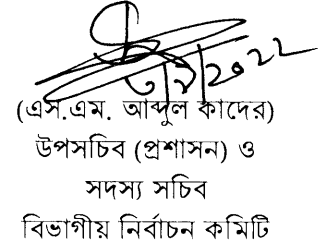 (এস.এম. আব্দুল কাদের)
উপসচিব (প্রশাসন) ও
সদস্য সচিব
বিভাগীয় নির্বাচন কমিটি